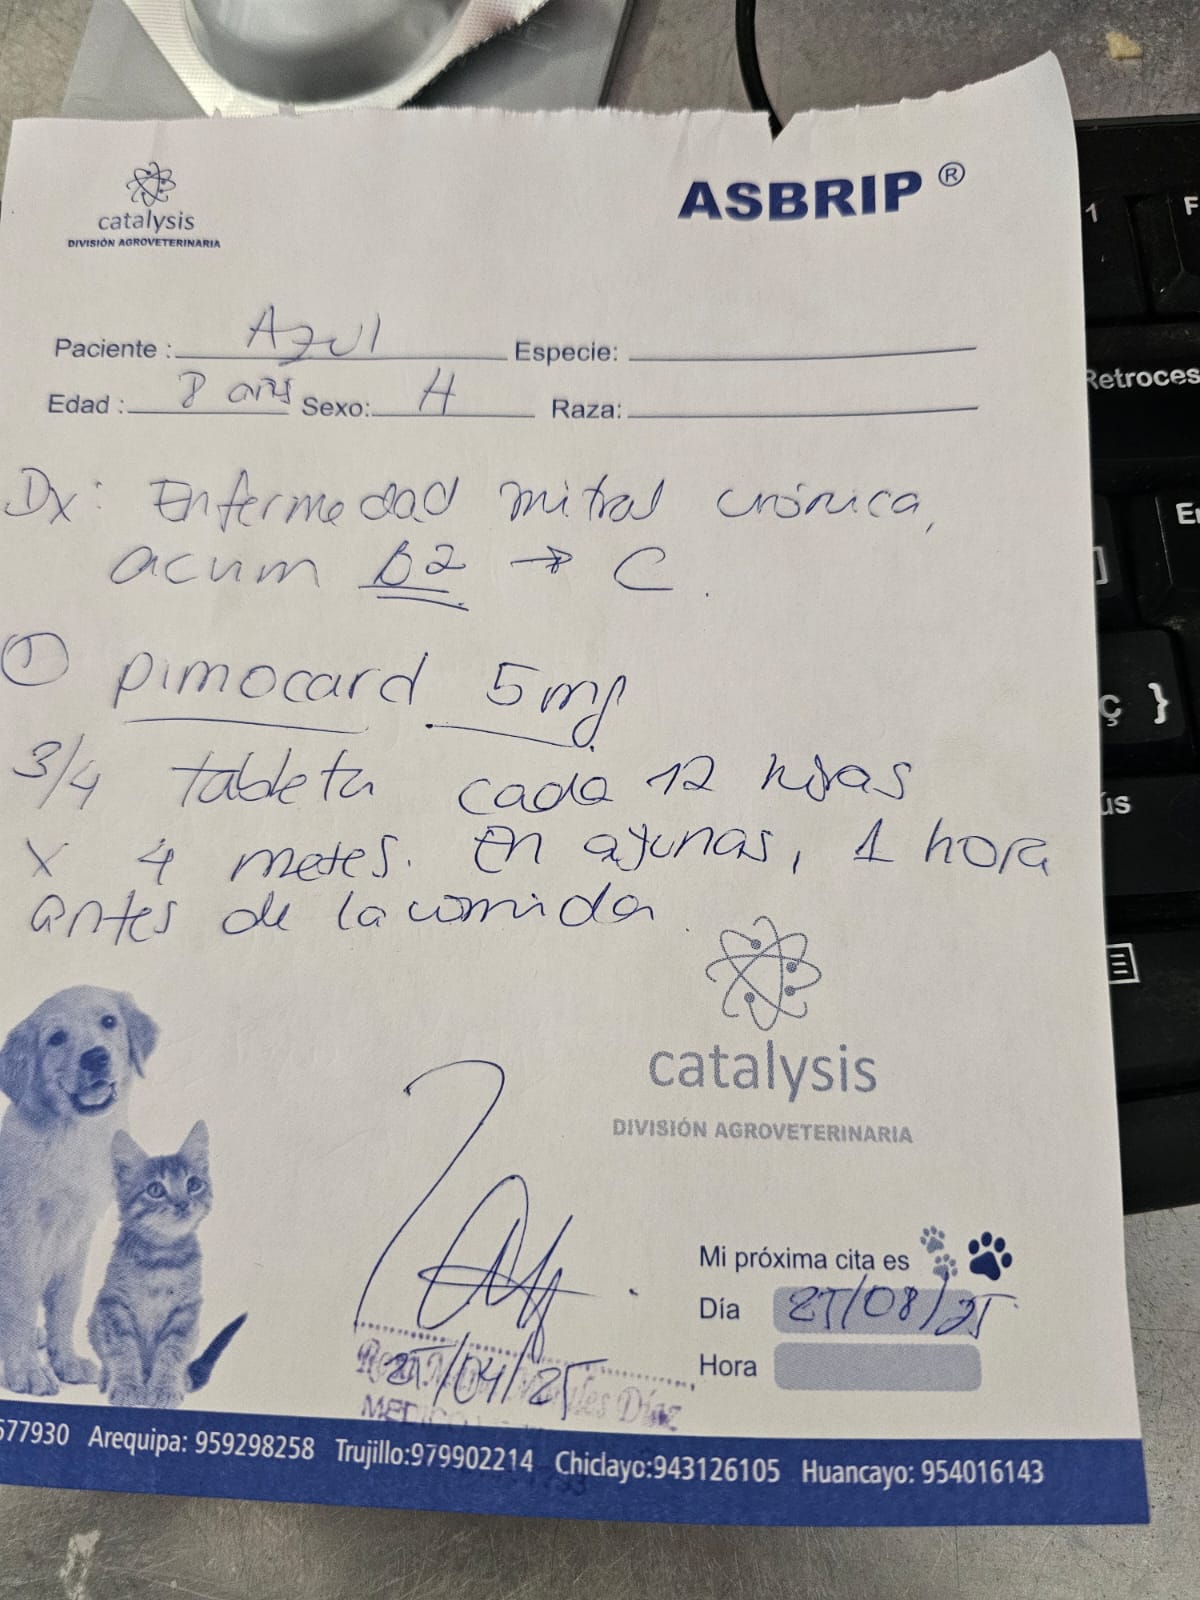 catalysis
DIVISIÓN AGROVETERINARIA
ASBRIP ®
Paciente : Azul Especie:
Edad : 8 años Sexo: H Raza:
Dx: Enfermedad mitral crónica,
acvim B2 → C.
① Pimocard 5mg
3/4 tableta cada 12 horas
x 4 meses. En ayunas, 1 hora
antes de la comida.
catalysis
DIVISIÓN AGROVETERINARIA
Mi próxima cita es
Día 25/08/25
Hora
25/04/25
Díaz
577930 Arequipa: 959298258 Trujillo:979902214 Chiclayo:943126105 Huancayo: 954016143
1
F
Retroces
En
]
ç }
ús